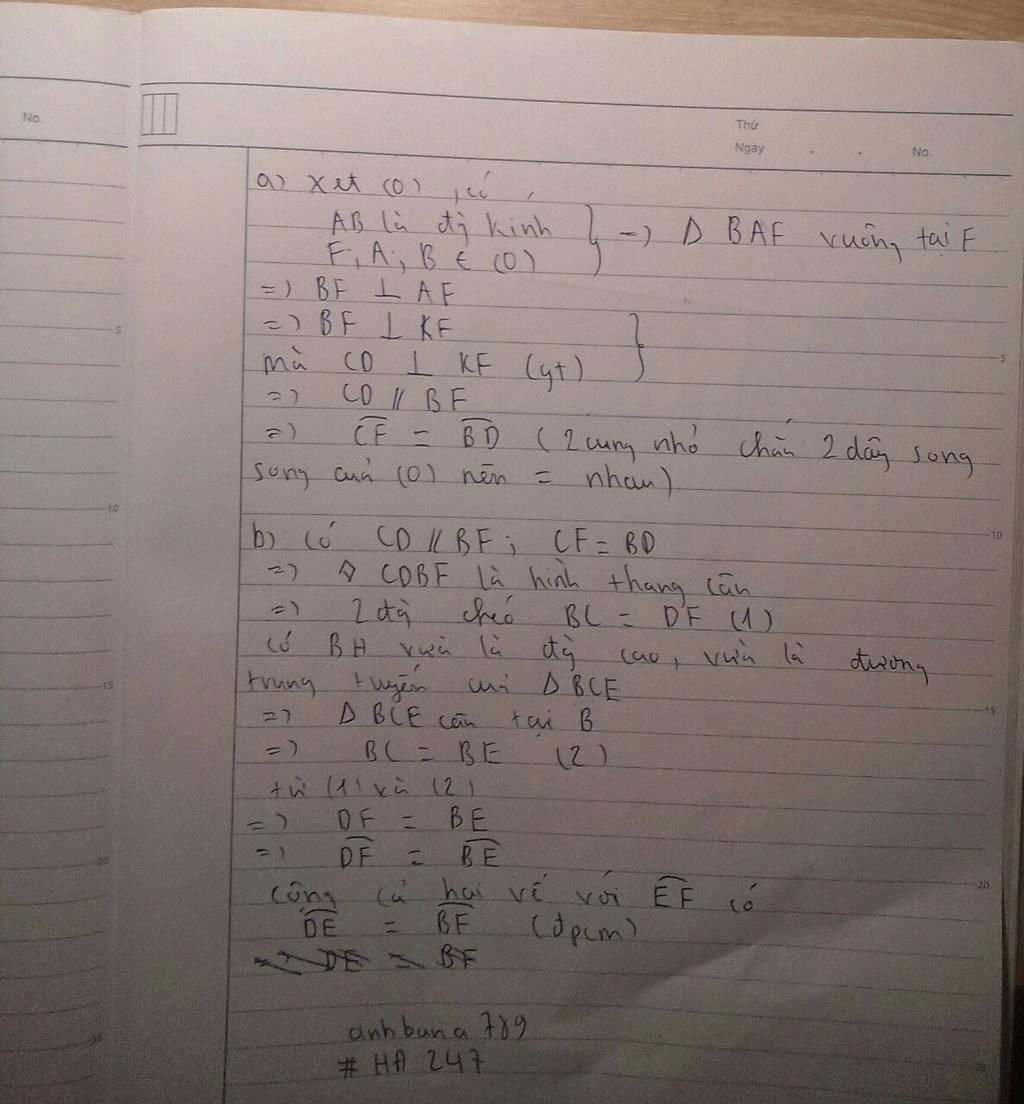 No.
Thứ
Ngày . . No.
a) Xét (O), có
AB là đg kính } => Δ BAF vuông tại F
F; A; B ∈ (O)
=> BF ⊥ AF
=> BF ⊥ KF
mà CD ⊥ KF (gt) }
=> CD // BF
=> CF = BD (2 cung nhỏ chắn 2 dây song
song của (O) nên = nhau)
b) Có CD // BF; CF = BD
=> ◊ CDBF là hình thang cân
=> 2 đg chéo BC = DF (1)
có BH vừa là đg cao, vừa là đường
trung tuyến của Δ BCE
=> Δ BCE cân tại B
=> BC = BE (2)
từ (1) và (2)
=> DF = BE
=> DF = BE
Cộng cả hai vế với EF có
DE = BF (đpcm)
=> DE = BF
anhbuna789
# HA 247
5
10
15
20
25
5
10
15
20